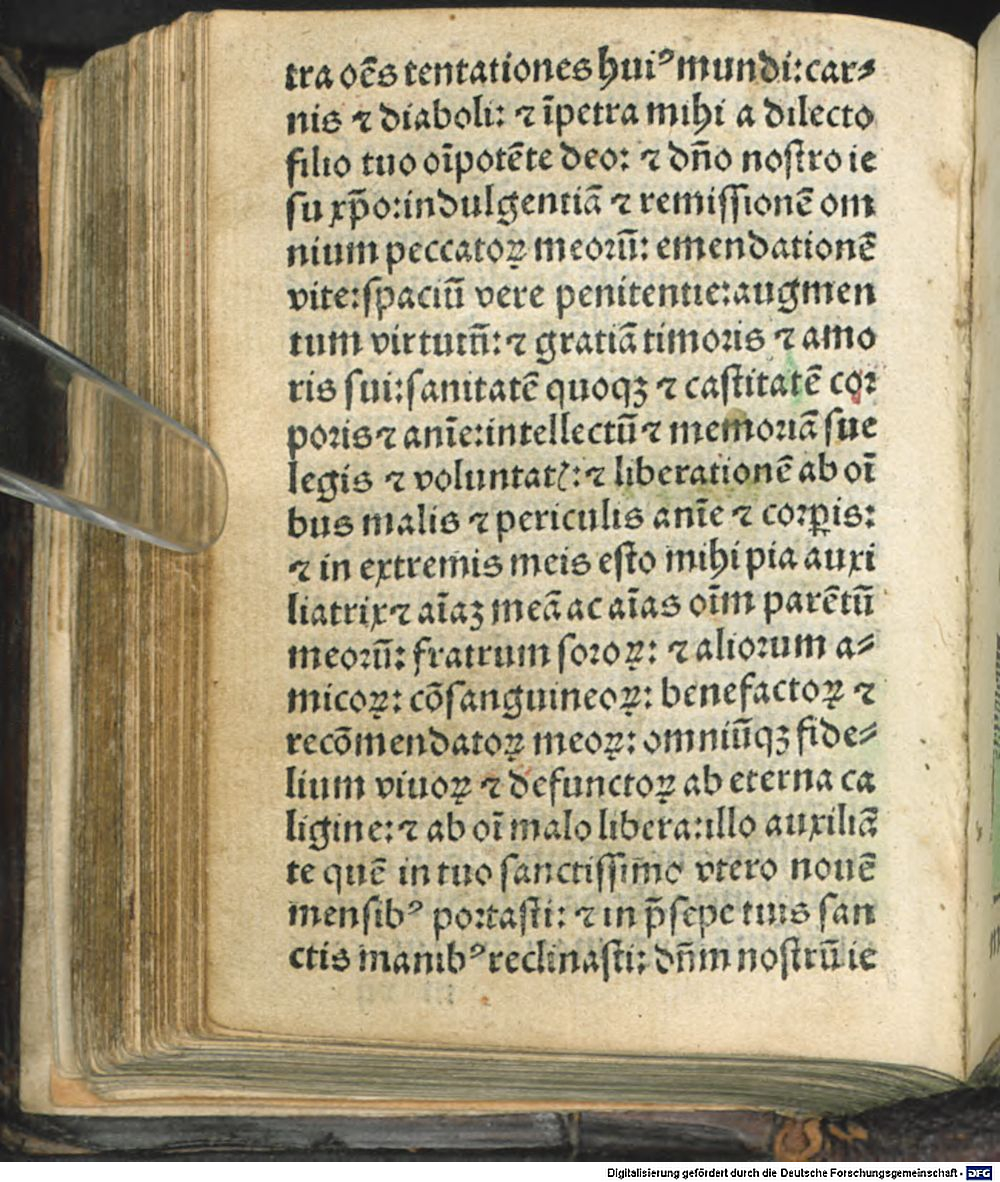 tra oēs tentationes huiꝰ mundi: car⸗
nis ⁊ diaboli: ⁊ īpetra mihi a dilecto
filio tuo oīpotēte deo: ⁊ dño nostro ie
su xp̄o: indulgentiā ⁊ remissionē om
nium peccatoꝝ meorū: emendationē
vite: spaciū vere penitentie: augmen
tum virtutū: ⁊ gratiā timoris ⁊ amo
ris sui: sanitatē quoqꝫ ⁊ castitatē cor
poris ⁊ anīe: intellectū ⁊ memoriā sue
legis ⁊ voluntatꝭ: ⁊ liberationē ab oī
bus malis ⁊ periculis anīe ⁊ corꝑis:
⁊ in extremis meis esto mihi pia auxi
liatrix ⁊ aīaꝫ meā ac aīas oīm parētū
meorū: fratrum soroꝝ: ⁊ aliorum a⸗
micoꝝ: cōsanguineoꝝ: benefactoꝝ ⁊
recōmendatoꝝ meoꝝ: omniūqꝫ fide⸗
lium viuoꝝ ⁊ defunctoꝝ ab eterna ca
ligine: ⁊ ab oī malo libera: illo auxiliā
te quē in tuo sanctissimo vtero nouē
mensibꝰ portasti: ⁊ in p̄sepe tuis san
ctis manibꝰ reclinasti: dñm nostrū ie
Digitalisierung gefördert durch die Deutsche Forschungsgemeinschaft - DFG